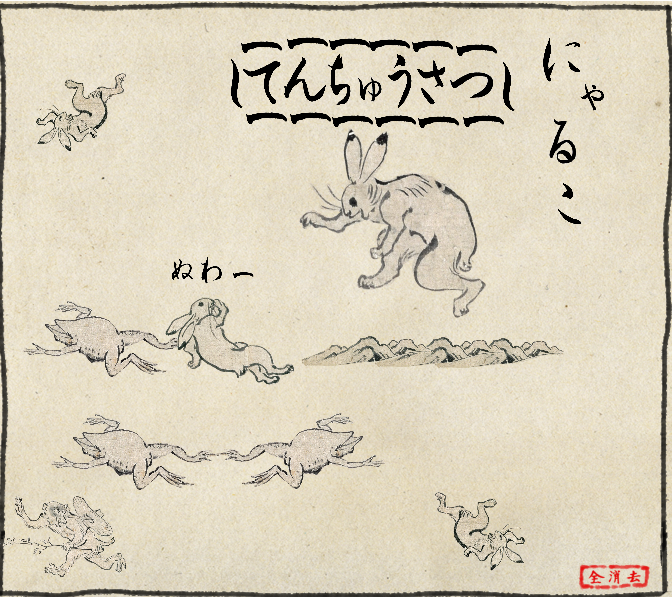 にゃるこ
してんちゅうさつし
ぬわー
全消去